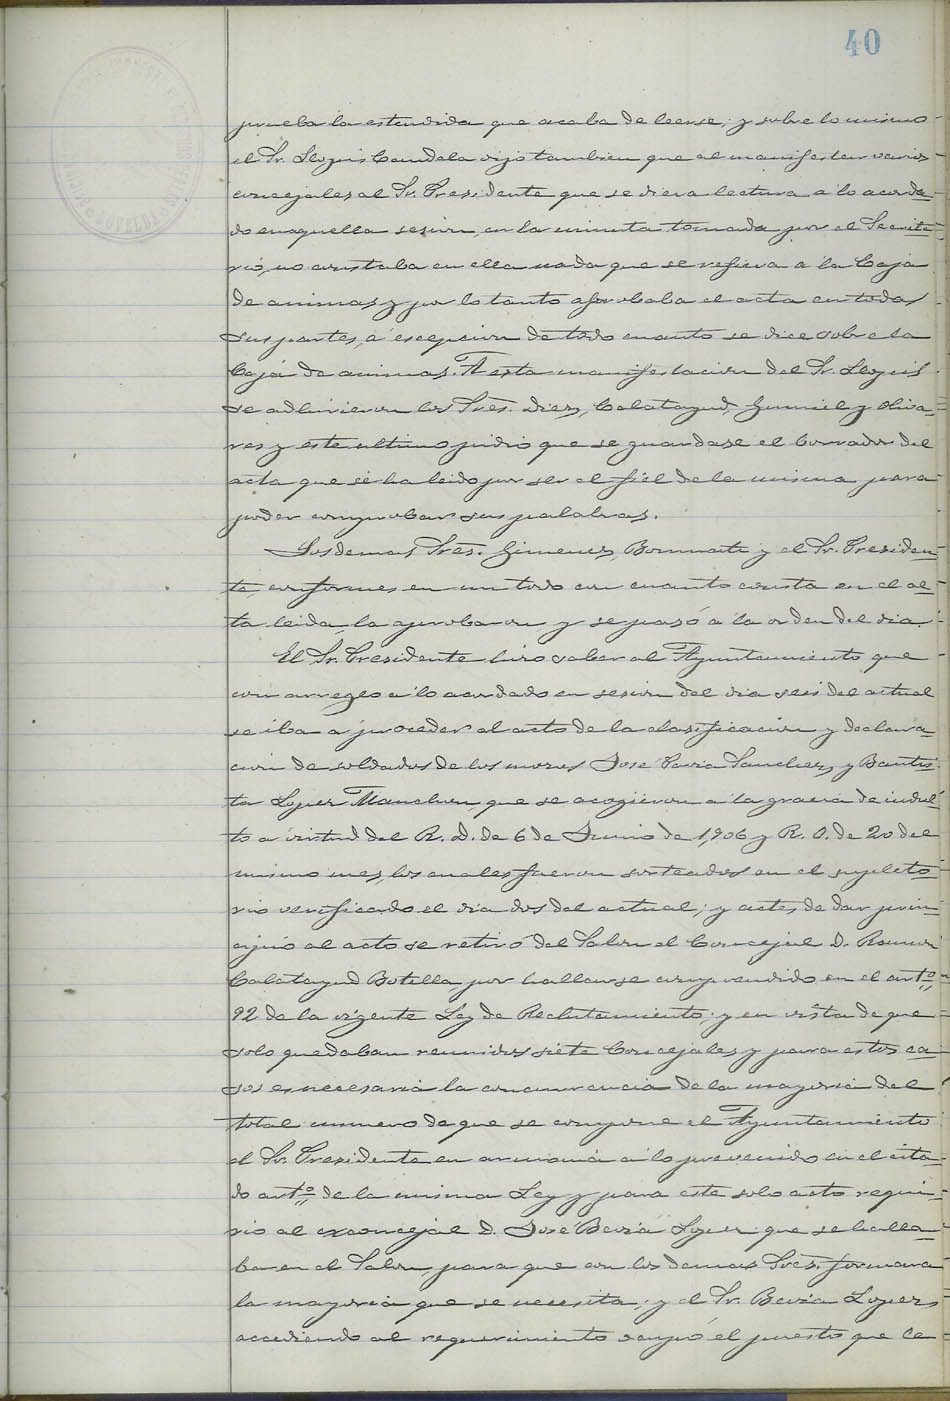 40
prueba la estendida que acaba de leerse; y sobre lo mismo
el Sr. Llopis Candela dijo tambien que al manifestar varios
concejales al Sr. Presidente que se diera lectura a lo acorda-
do en aquella sesion, en la minuta tomada por el Secreta-
rio, no constaba en ella nada que se refiera a la Caja
de animas y por lo tanto aprobaba el acta en todas
sus partes, á escepcion de todo cuanto se dice sobre la
Caja de animas. A esta manifestacion del Sr. Llopis
se adhirieron los Sres. Diez, Calatayud, Gumiel y Oliva-
res y este ultimo pidió que se guardase el borrador del
acta que se ha leido por ser el fiel de la misma para
poder comprobar sus palabras.
Los demas Sres. Gimenez, Bonmati y el Sr. Presiden-
te, conformes en un todo con cuanto consta en el ac-
ta leida, la aprobaron y se pasó á la orden del dia.
El Sr. Presidente hizo saber al Ayuntamiento que
con arreglo a lo acordado en sesion del dia seis del actual
se iba a proceder al acto de la clasificacion y declara-
cion de soldados de los mozos Jose Sanchez y Bautis-
ta Lopez que se acogieron a la gracia de indul-
to a virtud del R. D. de 6 de Junio de 1,906 y R. O. de 20 del
mismo mes, los cuales fueron sorteados en el supleto-
rio verificado el dia dos del actual; y antes de dar prin-
cipio al acto se retiró del Salon el Concejal D. Ramon
Calatayud Botella por hallarse comprendido en el artº
92 de la vigente Ley de Reclutamiento; y en vista de que
solo quedaban reunidos siete Concejales y para estos ca-
sos es necesaria la concurrencia de la mayoria del
total numero de que se compone el Ayuntamiento
el Sr. Presidente en armonia a lo prevenido en el cita-
do artº de la misma Ley y para este solo acto requi-
rio al exconcejal D. José Beviá Lopez que se halla-
ba en el Salon, para que con los demas Sres. formara
la mayoria que se necesita; y el Sr. Beviá Lopez
accediendo al requerimiento ocupó el puesto que le